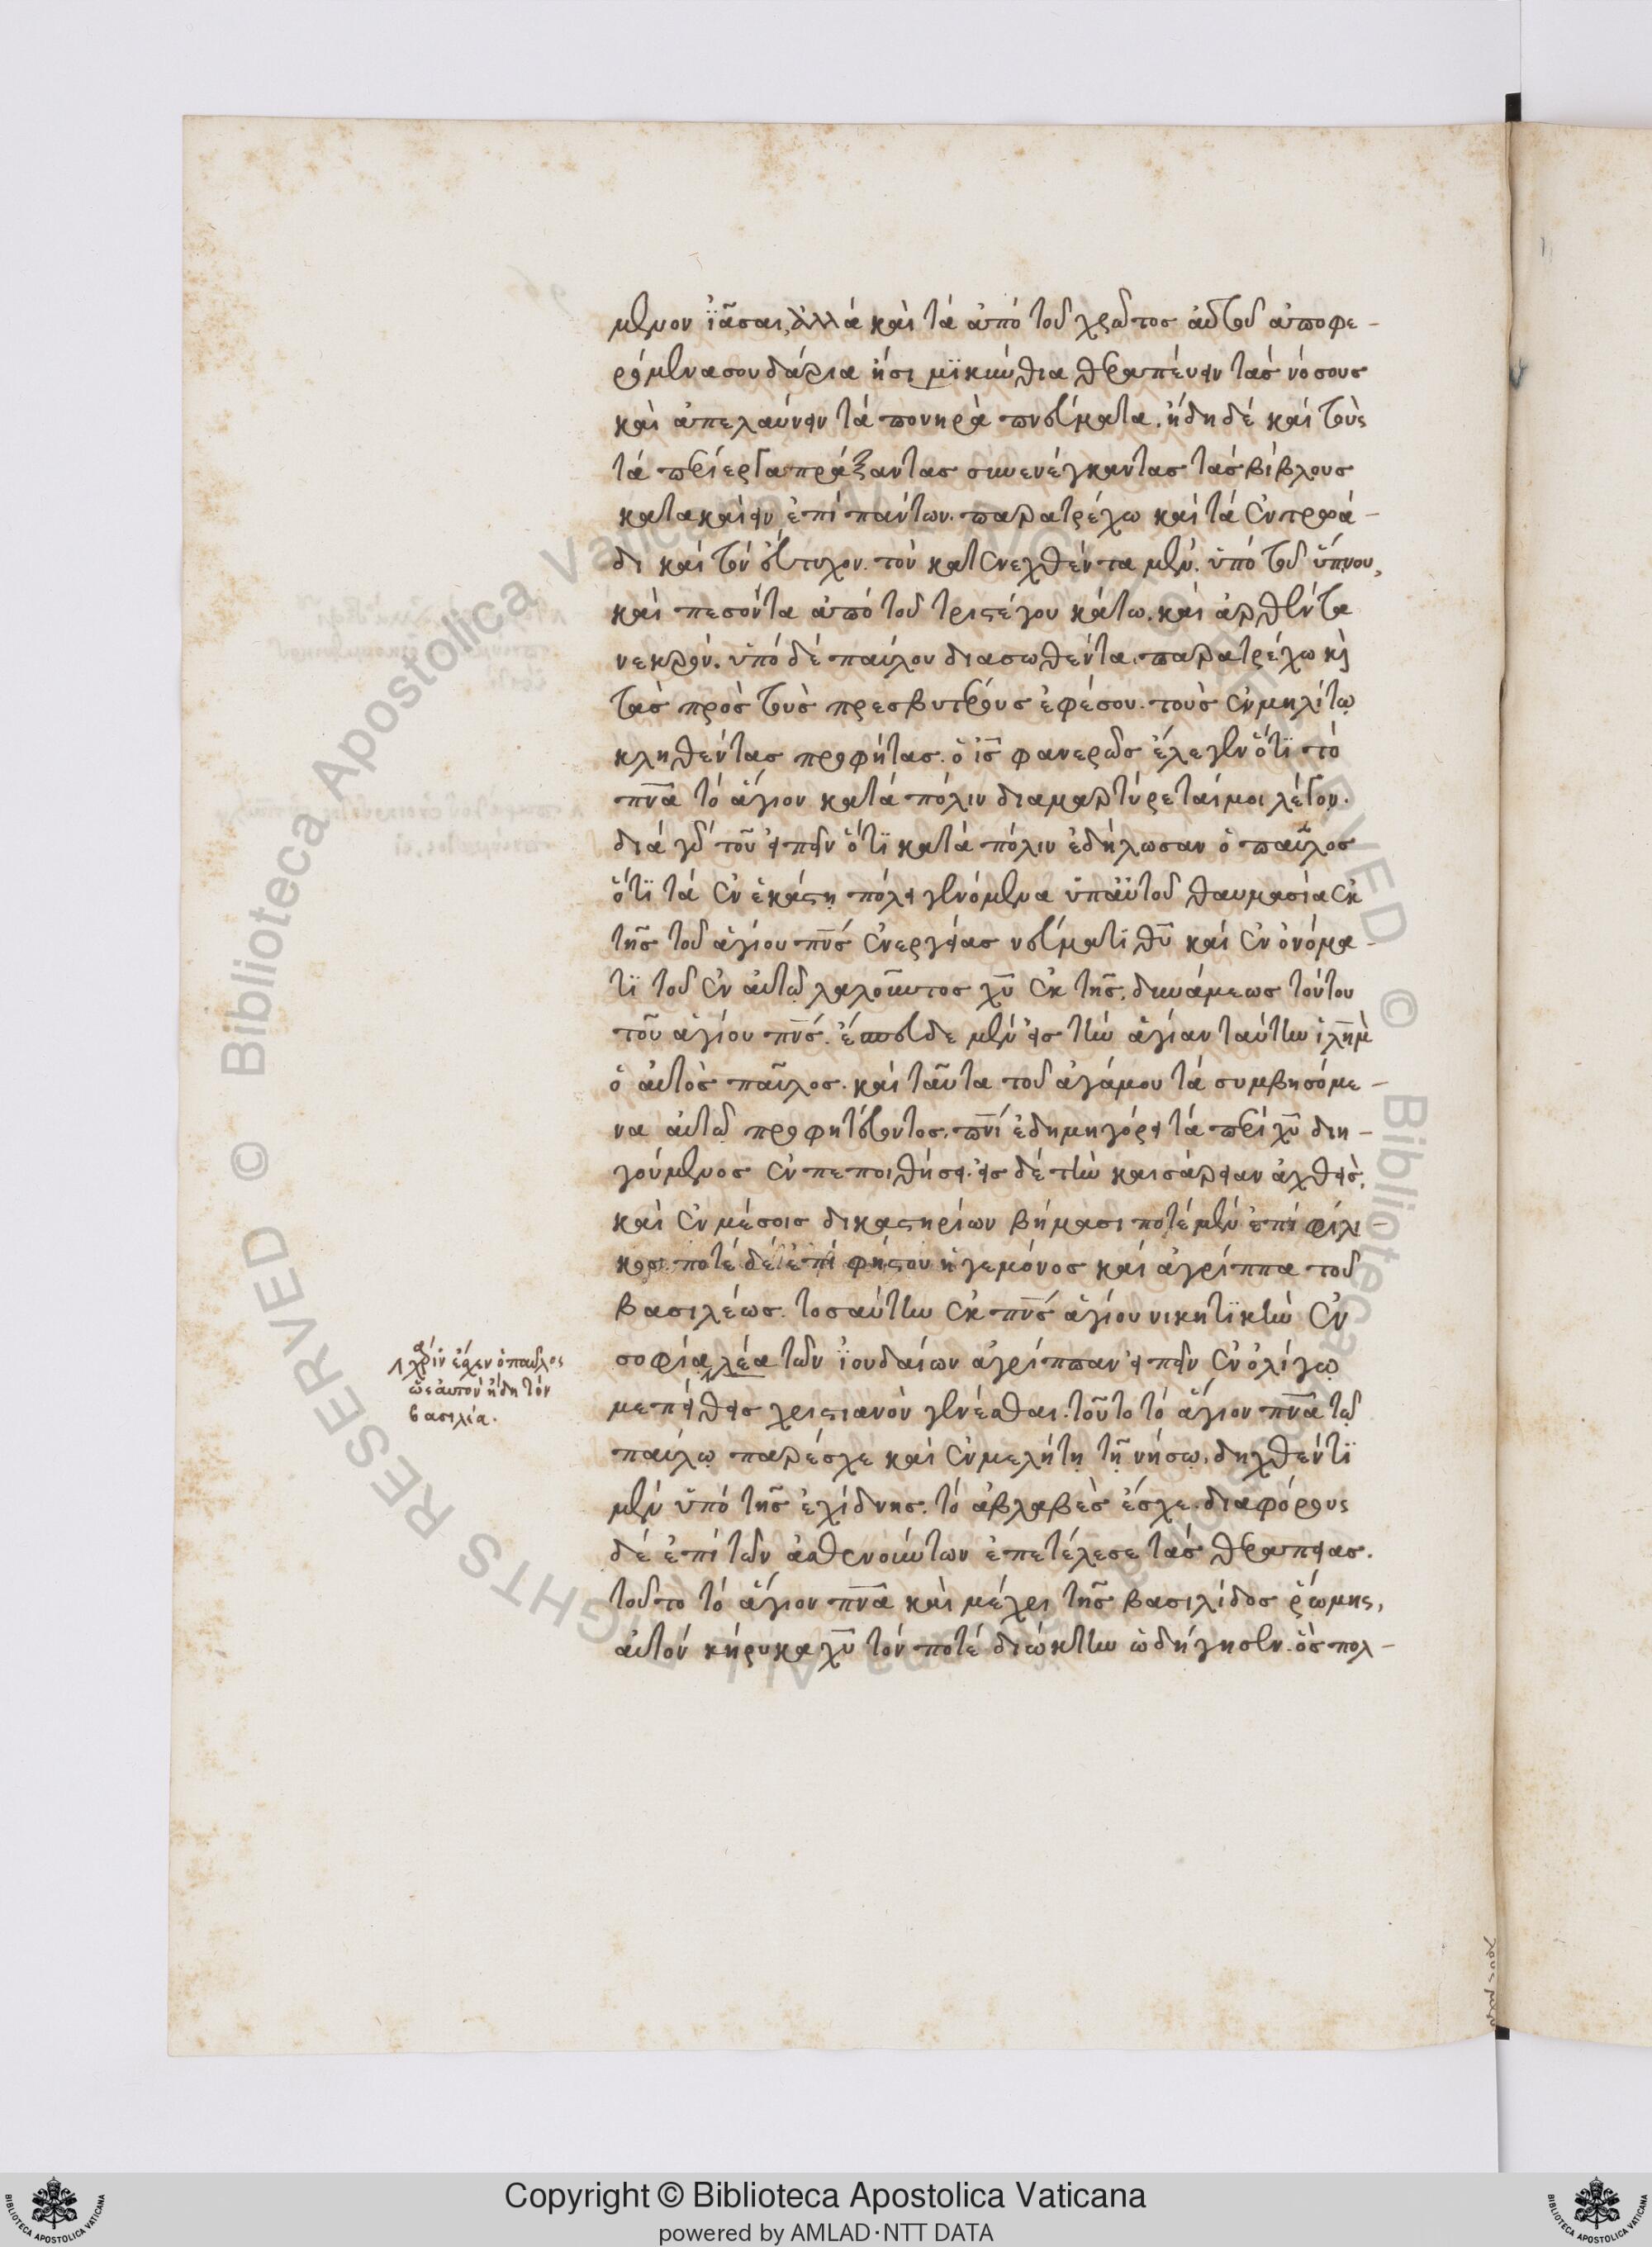 μενον ἰᾶσαι, ἀλλὰ καὶ τὰ ἀπὸ τοῦ χρωτὸς αὐτοῦ ἀποφε-
ρόμενα σουδάρια ἢ σιμικίνθια θεραπεύειν τὰς νόσους
καὶ ἀπελαύνειν τὰ πονηρὰ πνεύματα. ἤδη δὲ καὶ τοὺς
τὰ περίεργα πράξαντας συνενέγκαντας τὰς βίβλους
κατακαίειν ἐπὶ πάντων. παρατρέχω καὶ τὰ ἐν τρωά-
δι καὶ τὸν εὔτυχον. τὸν κατενεχθέντα μὲν ὑπὸ τοῦ ὕπνου,
καὶ πεσόντα ἀπὸ τοῦ τριστέγου κάτω. καὶ ἀρθέντα
νεκρόν. ὑπὸ δὲ παύλου διασωθέντα. παρατρέχω κὶ
τὰς πρὸς τοὺς πρεσβυτέρους ἐφέσου. τοὺς ἐν μηλίτω
κληθέντας προφήτας. ὁ ις φανερῶς ἔλεγεν ὅτι τὸ
πνα τὸ ἅγιον κατὰ πόλιν διαμαρτύρεταί μοι λέγον.
διὰ γὰρ τοῦ εἰπεῖν ὅτι κατὰ πόλιν ἐδήλωσαν ὁ παῦλος
ὅτι τὰ ἐν ἑκάστη πόλει γενόμενα ὑπ' αὐτοῦ θαυμασία ἐκ
τῆς τοῦ ἁγίου πνς ἐνεργείας νεύματι θυ καὶ ἐν ὀνόμα-
τι τοῦ ἐν αὐτῷ λαλοῦντος χυ ἐκ τῆς δυνάμεως τούτου
τοῦ ἁγίου πνς. ἔσπευδε μὲν εἰς τὴν ἁγίαν ταύτην ἱλημ
ὁ αὐτὸς παῦλος. καὶ ταῦτα τοῦ ἀγάμου τὰ συμβησόμε-
να αὐτῷ προφητεύοντος. πνι ἐδημηγόρει τὰ περὶ χυ διη-
γούμενος ἐν πεποιθήσει. εἰς δὲ τὴν καισάρειαν ἀχθεὶς,
καὶ ἐν μέσοις δικαστηρίων βήμασι ποτὲ μὲν ἐπὶ φίλι-
κος ποτὲ δὲ ἐπὶ φήστου ἡγεμόνος καὶ ἀγρίππα τοῦ
βασιλέως. τοσαύτην ἐκ πνς ἁγίου νικητικὴν ἐν
σοφία, λέα τῶν ἰουδαίων ἀγρίππαν εἰπεῖν ἐν ὀλίγω
με πείθεις χριστιανὸν γενέσθαι. τοῦτο τὸ ἅγιον πνα τῷ
παύλω παρέσχε καὶ ἐν μελήτη τῇ νήσω. δηχθέντι
μὲν ὑπὸ τῆς ἐχίδνης. τὸ ἀβλαβὲς ἔσχε. διαφόρους
δὲ ἐπὶ τῶν ἀσθενούντων ἐπετέλεσε τὰς θεραπείας.
τοῦτο τὸ ἅγιον πνα καὶ μέχρι τῆς βασιλίδος ῥώμης,
αὐτὸν κήρυκα χυ τὸν ποτὲ διώκτην ὡδήγησεν. ὃς πολ-
χάριν ἔσχεν ὁ παῦλος
ὥστε αὐτὸν ἤδη τὸν
βασιλέα.
Copyright © Biblioteca Apostolica Vaticana
powered by AMLAD·NTT DATA